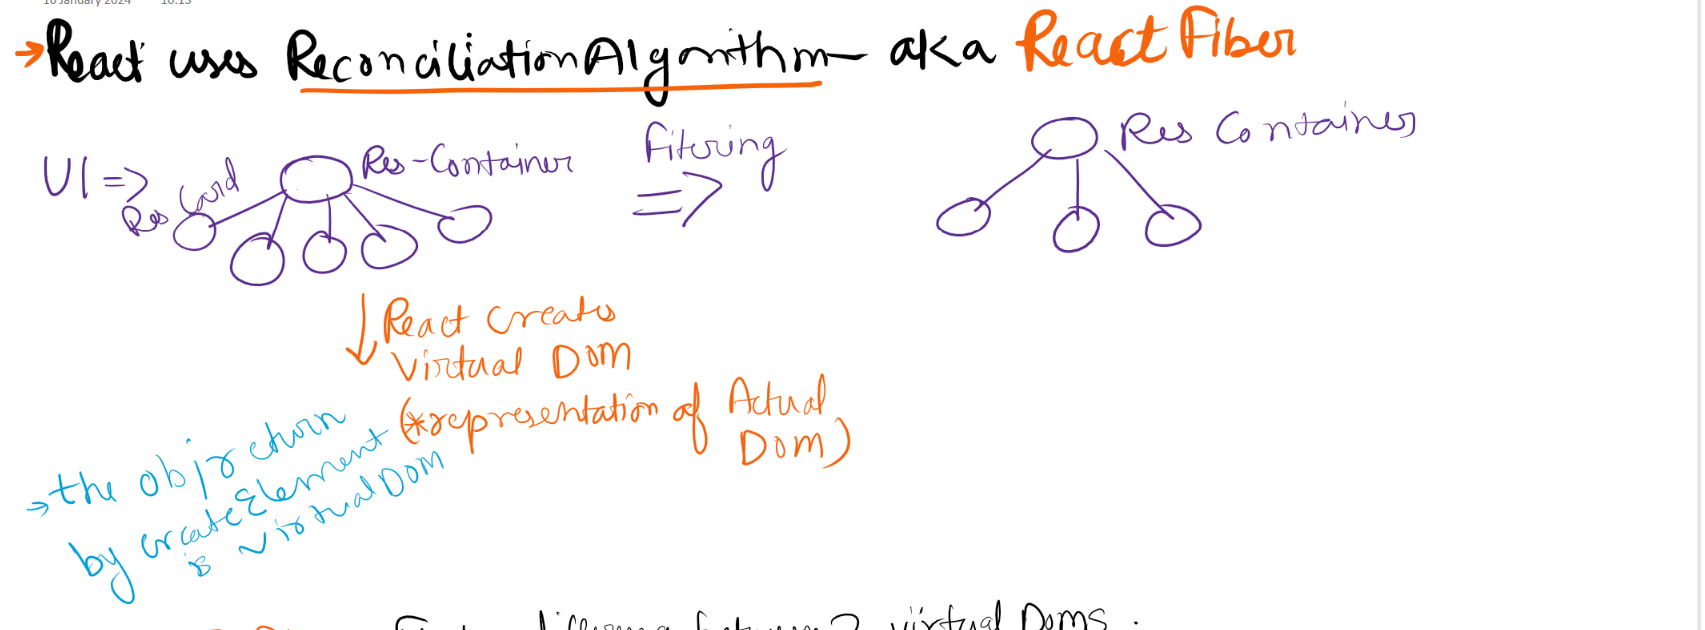 10 January 2024 10:13
→React uses Reconciliation Algorithm - aka React Fiber
UI =>
Res Card
Res-Container
Filtering
=>
Res Container
React Creates
Virtual Dom
(*representation of Actual
Dom)
→ the obj return
by createElement
is virtual DOM
difference between 2 virtual Doms.